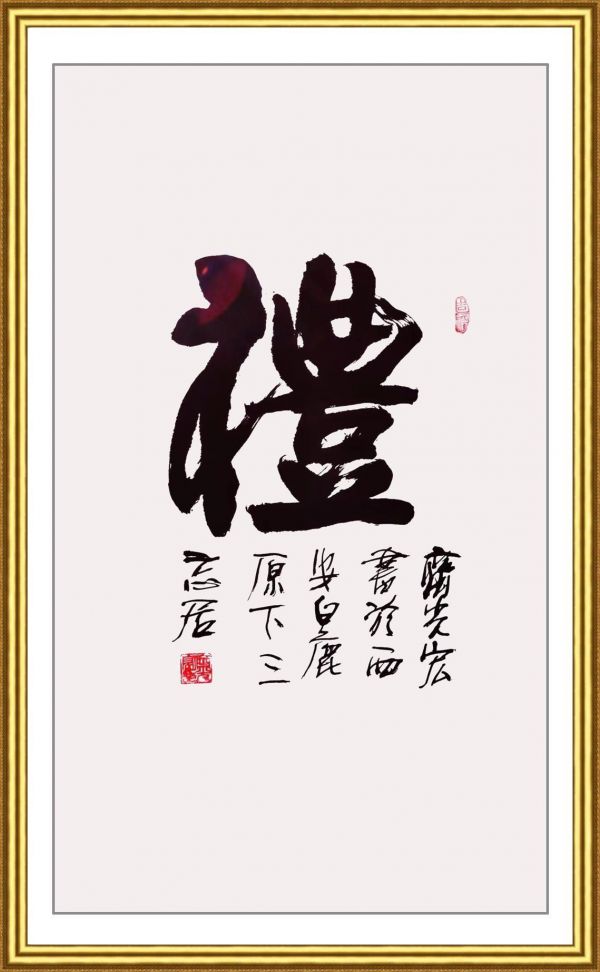 禮
光宏
書於西
安白鹿
原下三
志居